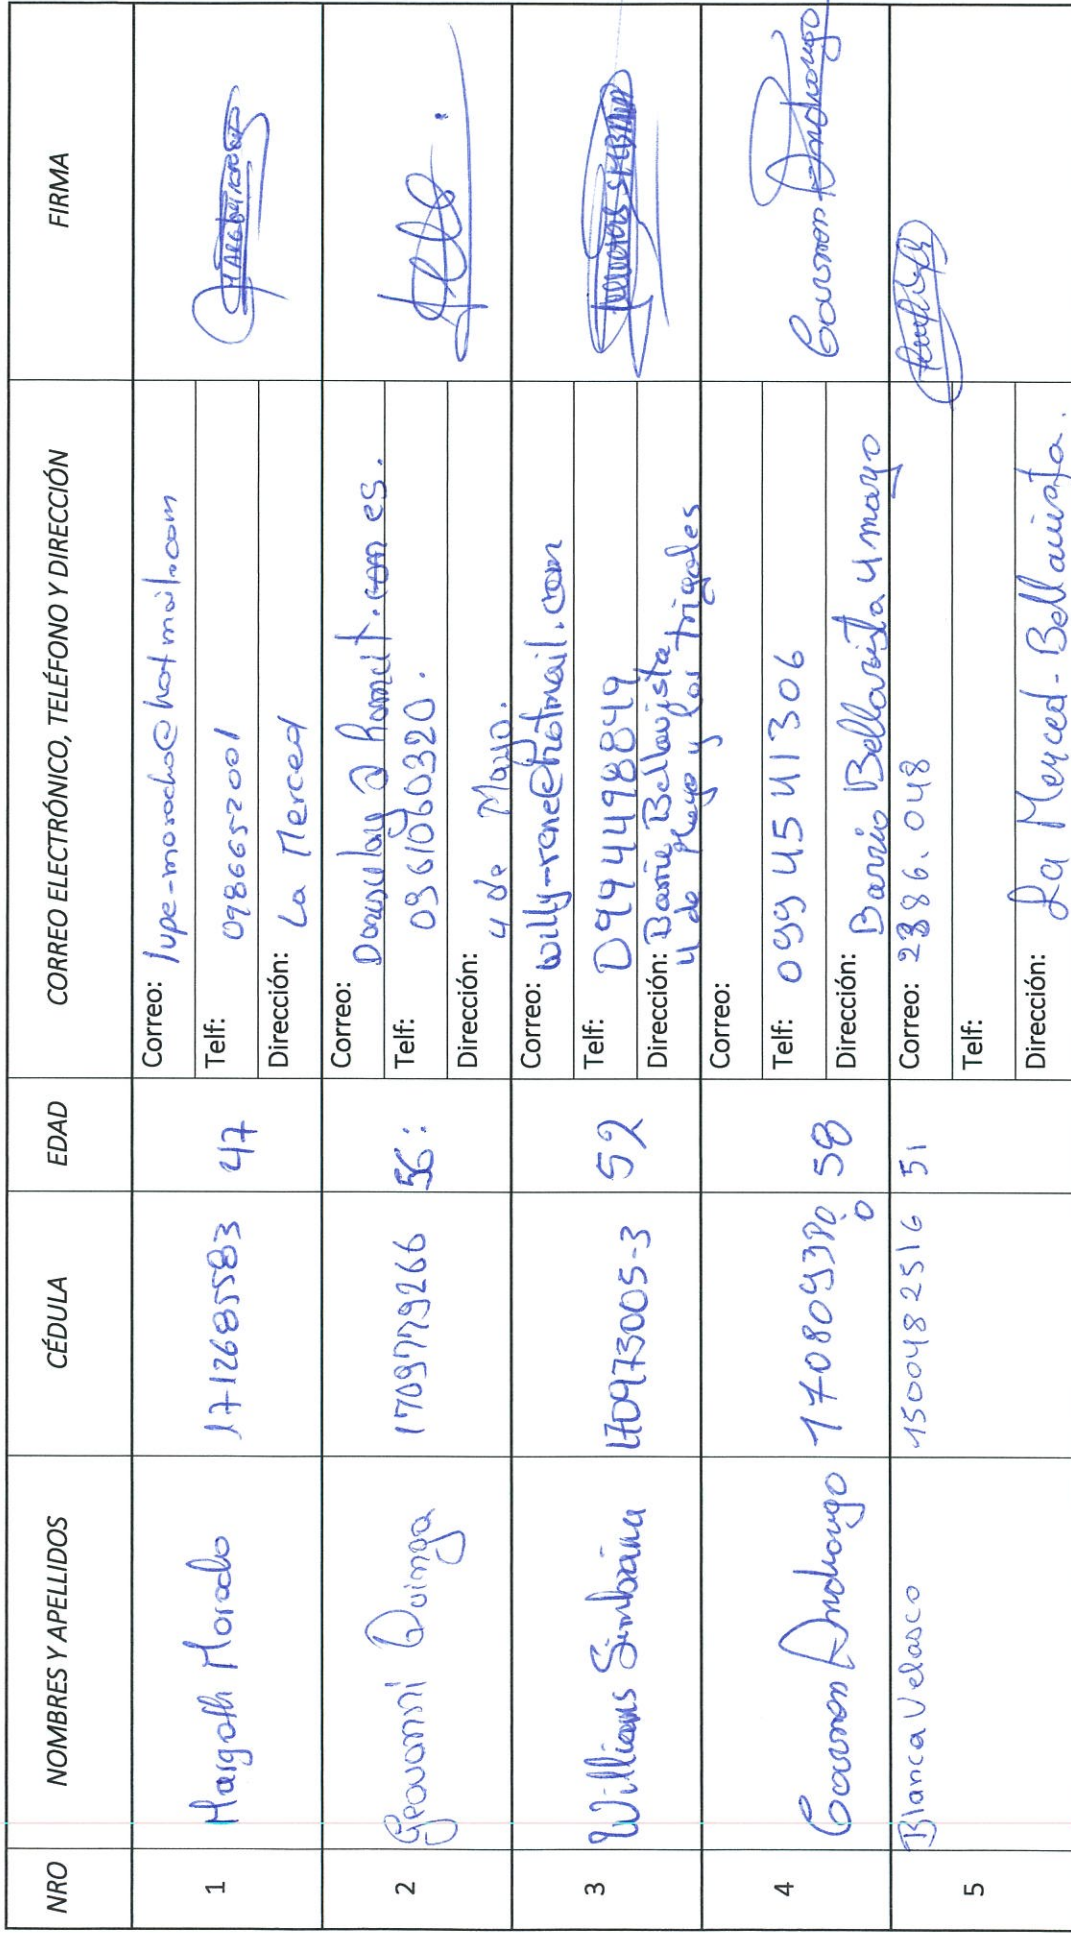 NRO NOMBRES Y APELLIDOS CÉDULA EDAD CORREO ELECTRÓNICO, TELÉFONO Y DIRECCIÓN FIRMA
1 Margoth Morocho 1712685583 47
Correo: lupe-morocho@hotmail.com
Telf: 0986652001
Dirección: La Merced
2 Geovanni Quinga 1709779266 56.
Correo: @
Telf: 0961060320.
Dirección: 4 de Mayo.
3 Willians Simbaña 170973005-3 52
Correo: willy-rene@hotmail.com
Telf: 0994498849
Dirección: Barrio Bellavista
4 de Mayo y los Trigales
4 Carmen Andrango 58
Correo:
Telf: 0994541306
Dirección: Barrio Bellavista 4 mayo
Carmen Andrango
5 Blanca Velasco 1500482516 51
Correo: 2886.048
Telf:
Dirección: La Merced-Bellavista.